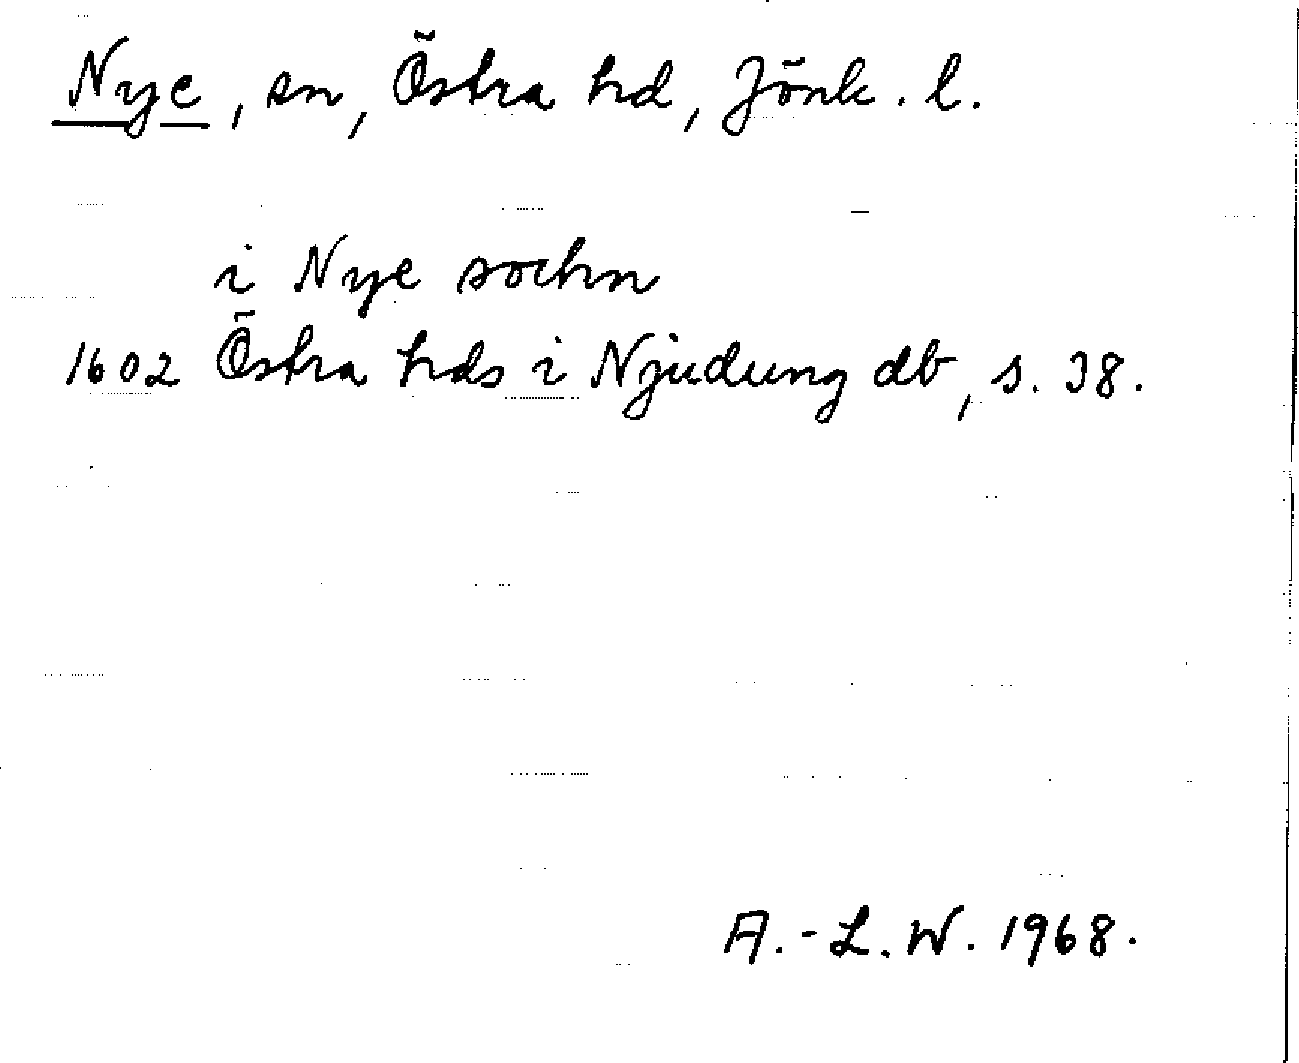 Nye, sn, Östra hd, Jönk. l.
i Nye sochn
1602 Östra hds i Njudung db, s. 38.
A.-L. W. 1968.